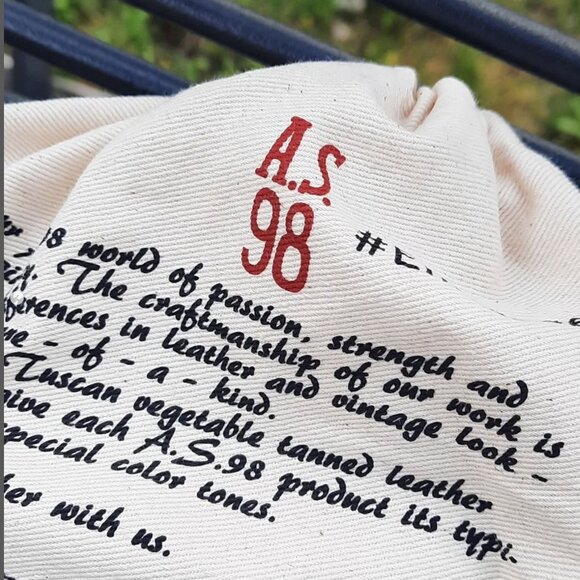 A.S.
98
98 world of passion, strength and
The craftmanship of our work is
in leather and vintage look -
- of - a - kind.
Tuscan vegetable tanned leather
each A.S.98 product its typi-
special color tones.
with us.